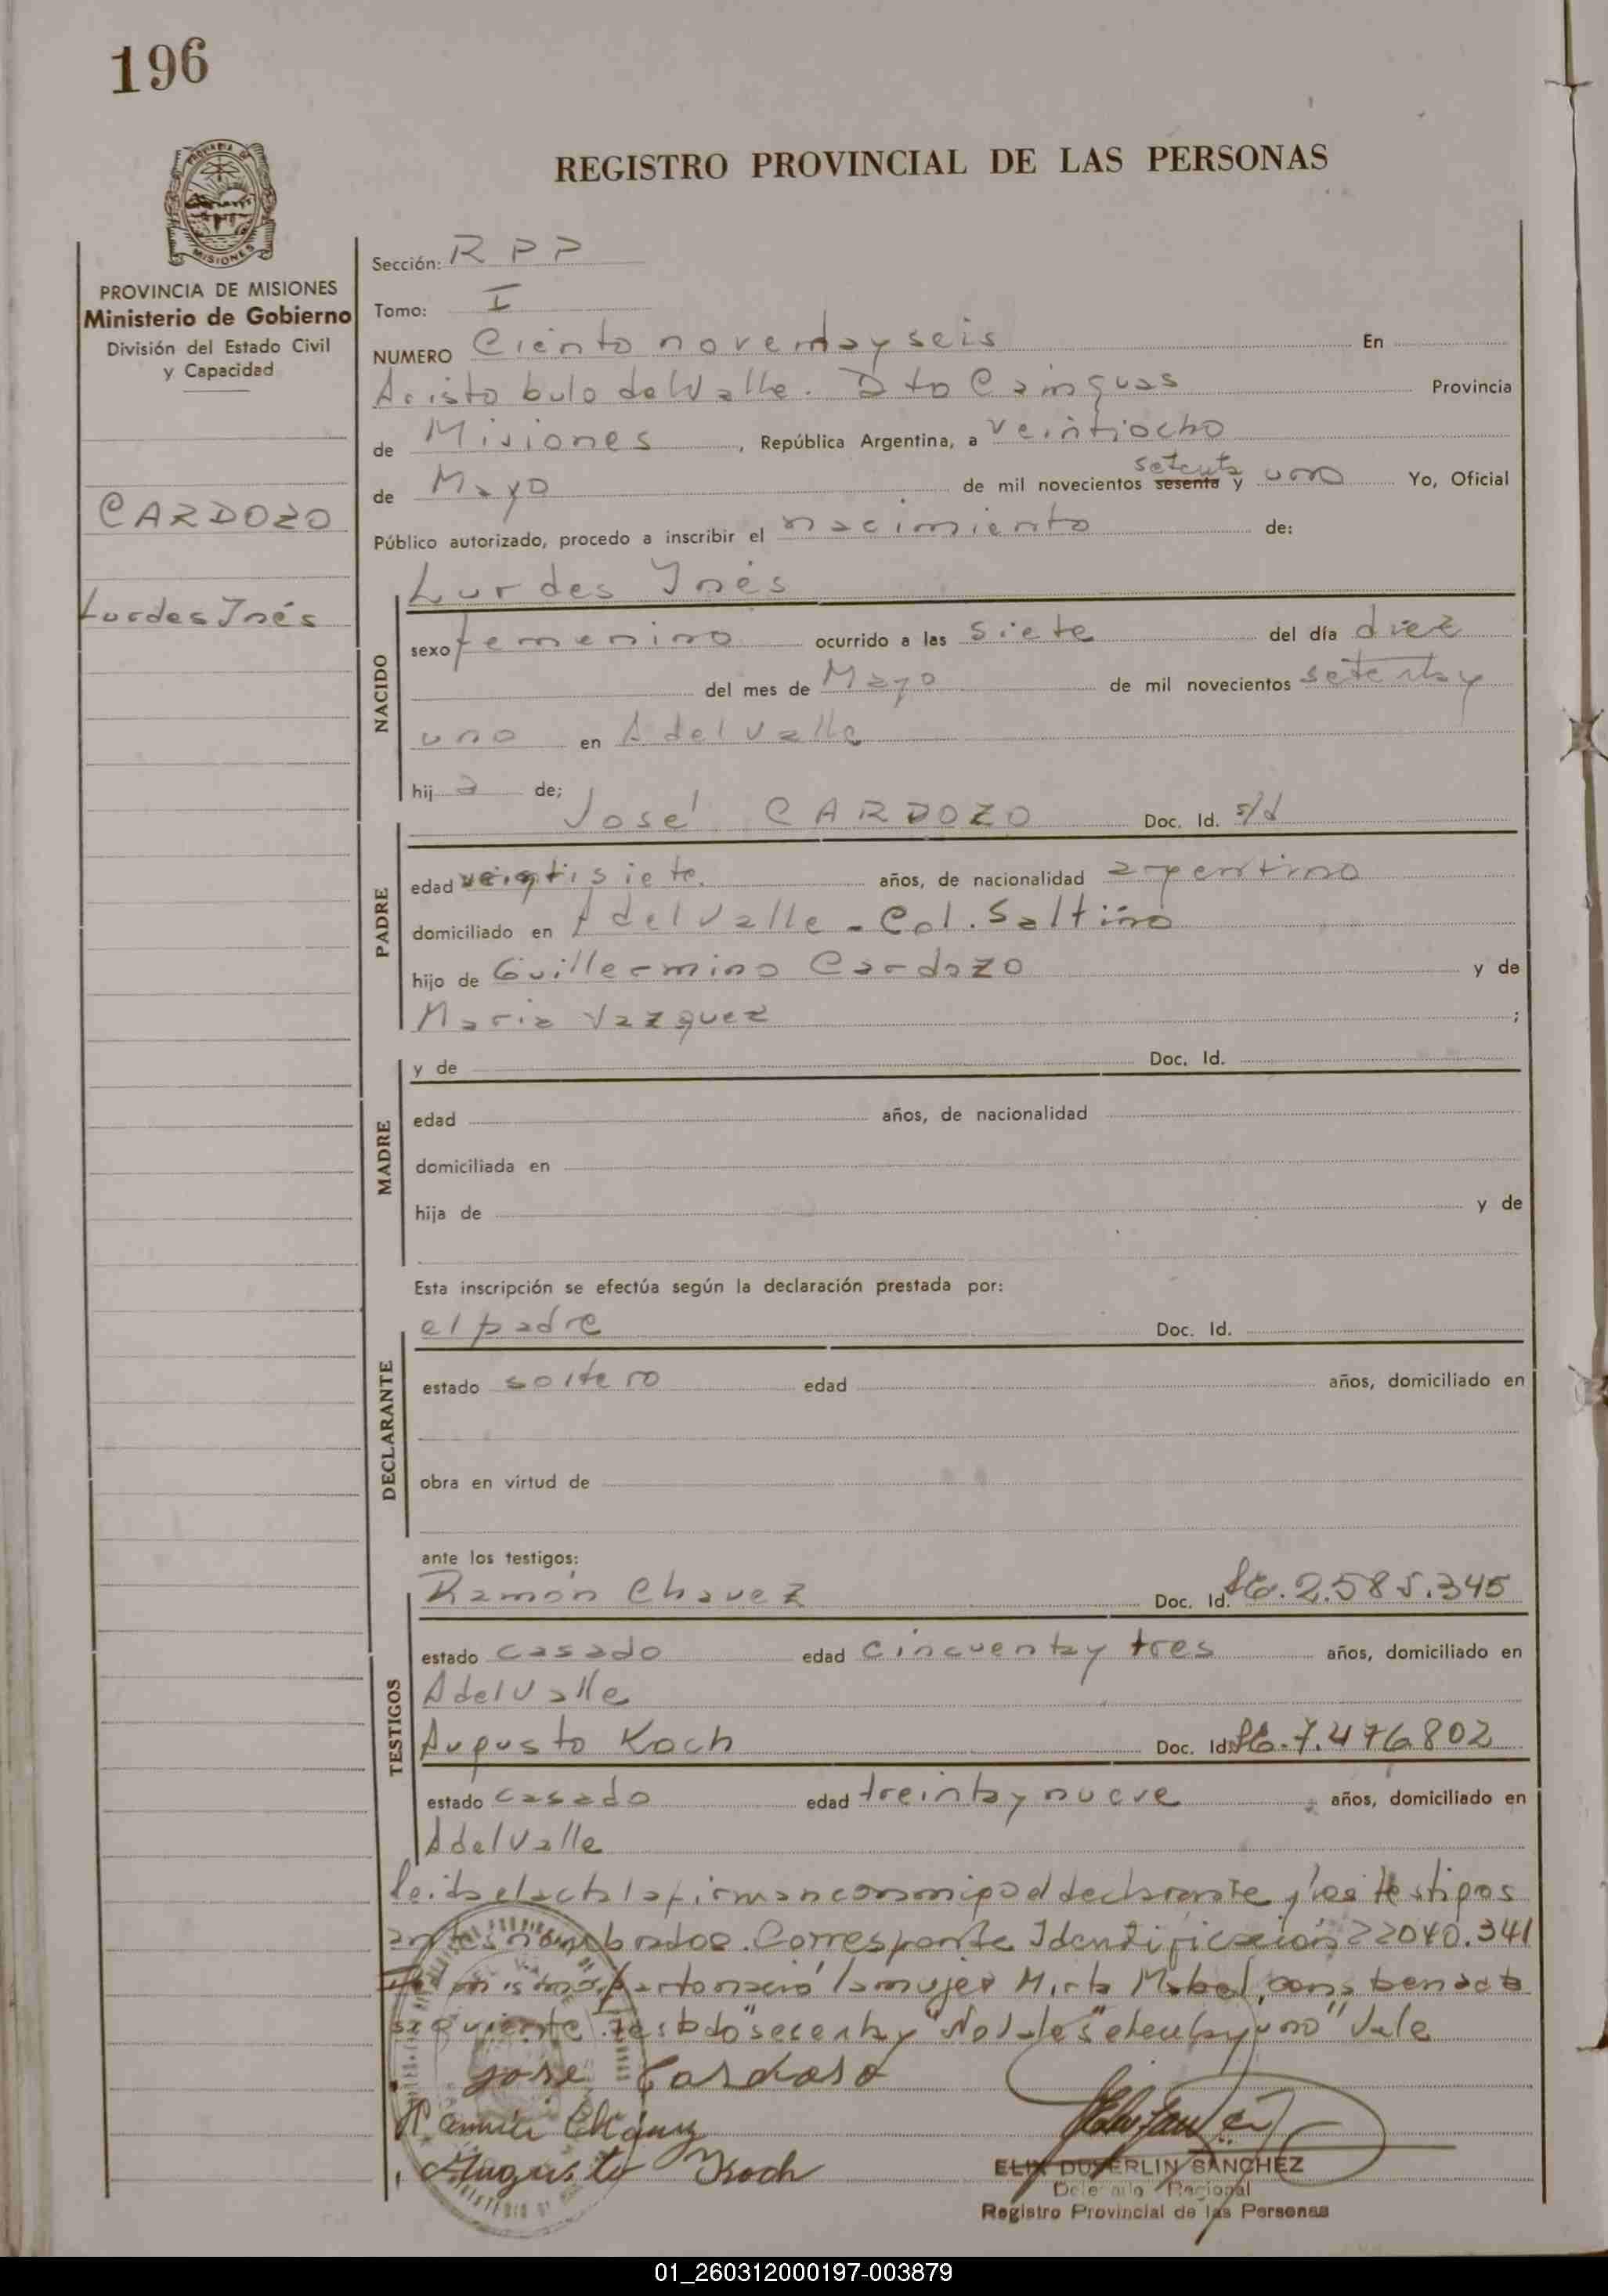 196
REGISTRO PROVINCIAL DE LAS PERSONAS
PROVINCIA DE MISIONES
MISIONES
PROVINCIA DE MISIONES
Ministerio de Gobierno
División del Estado Civil
y Capacidad
CARDOZO
Lurdes Inés
Sección: R P P
Tomo: I
NUMERO Ciento noventa y seis En
Aristobulo del Valle. Dto Cainguas Provincia
de Misiones, República Argentina, a veintiocho
de Mayo de mil novecientos sesenta setenta y uno Yo, Oficial
Público autorizado, procedo a inscribir el nacimiento de:
Lurdes Inés
NACIDO
sexo femenino ocurrido a las siete del día diez
del mes de Mayo de mil novecientos setenta y
uno en A del Valle
hija de;
José CARDOZO Doc. Id. s/d
PADRE
edad veintisiete. años, de nacionalidad argentino
domiciliado en A del Valle - Col. Saltiño
hijo de Guillermino Cardozo y de
Maria Vazquez ;
MADRE
y de Doc. Id.
edad años, de nacionalidad
domiciliada en
hija de y de
Esta inscripción se efectúa según la declaración prestada por:
el padre Doc. Id.
DECLARANTE
estado soltero edad años, domiciliado en
obra en virtud de
ante los testigos:
Ramón Chavez Doc. Id. 2.585.345
TESTIGOS
estado casado edad cincuenta y tres años, domiciliado en
A del Valle
Augusto Koch Doc. Id. 7.476802
estado casado edad treinta y nueve años, domiciliado en
A del Valle
leida el acta la firman conmigo el declarante y los testigos
antes nombrados. Corresponde Identificación 22040.341
mismo parto nació la mujer Mirta Mabel, acta
siguiente. Testado "sesenta y" No vale "setenta y uno" Vale
Jose Cardoso
Ramón Chávez
Augusto Koch
ELIX DUVERLIN SANCHEZ
Delegado Regional
Registro Provincial de las Personas
01_260312000197-003879